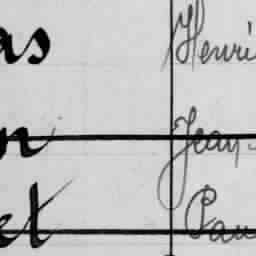 as Henri
n Jean-
et Pau